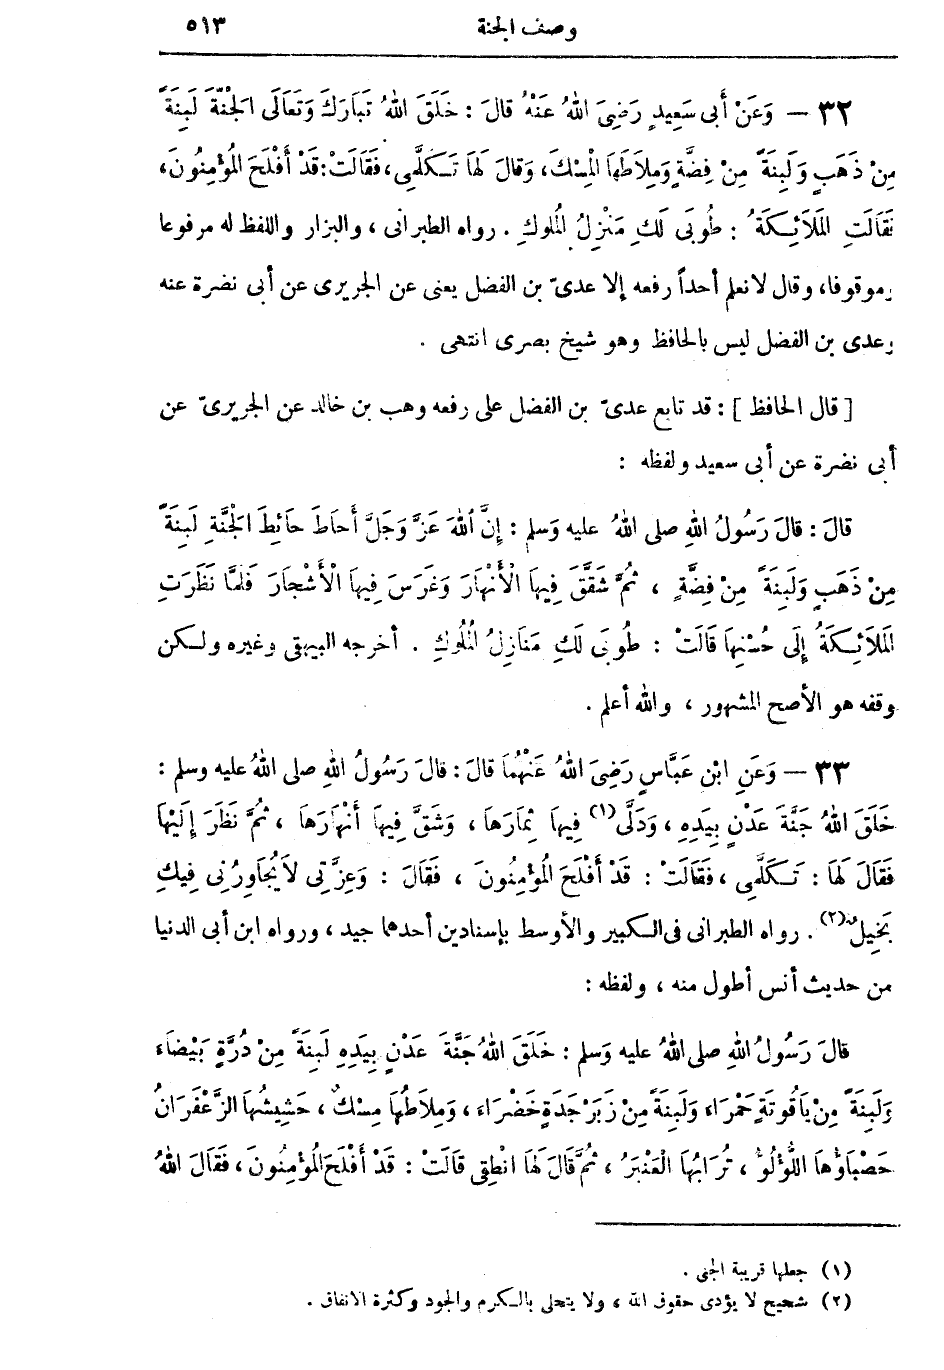 وصف الجنة ٥١٣
٣٢ — وَعَنْ أَبِى سَعِيدٍ رَضِىَ اللهُ عَنْهُ قَالَ : خَلَقَ اللهُ تَبَارَكَ وَتَعَالَى الْجَنَّةَ لَبِنَةً
مِنْ ذَهَبٍ وَلَبِنَةً مِنْ فِضَّةٍ وَمِلَاطَهَا الْمِسْكَ، وَقَالَ لَهَا تَكَلَّمِى، فَقَالَتْ: قَدْ أَفْلَحَ الْمُؤْمِنُونَ،
فَقَالَتِ الْمَلَائِكَةُ : طُوبَى لَكِ مَنْزِلُ الْمُلوكِ . رواه الطبرانى ، والبزار واللفظ له مرفوعا
وموقوفا، وقال لانعلم أحداً رفعه إلا عدىّ بن الفضل يعنى عن الجريرى عن أبى نضرة عنه
وعدى بن الفضل ليس بالحافظ وهو شيخ بصرى انتهى .
[ قال الحافظ ] : قد تابع عدىّ بن الفضل على رفعه وهب بن خالد عن الجريرىّ عن
أبى نضرة عن أبى سعيد ولفظه :
قالَ : قالَ رَسُولُ اللهِ صلى اللهُ عليه وَسلم : إِنَّ اللهَ عَزَّ وَجَلَّ أَحَاطَ حَائِطَ الْجَنَّةِ لَبِنَةً
مِنْ ذَهَبٍ وَلَبِنَةً مِنْ فِضَّةٍ ، ثُمَّ شَقَّقَ فِيهَا الْأَنْهَارَ وَغَرَسَ فِيهَا الْأَشْجَارَ فَلَمَّا نَظَرَتِ
الْمَلَائِكَةُ إِلَى حُسْنِهَا قَالَتْ : طُوبَى لَكِ مَنَازِلُ الْمُلُوكِ . أخرجه البيهقى وغيره ولكن
وقفه هو الأصح المشهور ، والله أعلم .
٣٣ — وَعَنِ ابْنِ عَبَّاسٍ رَضِىَ اللهُ عَنْهُمَا قالَ : قالَ رَسُولُ اللهِ صلى اللهُ عليه وسلم :
خَلَقَ اللهُ جَنَّةَ عَدْنٍ بِيَدِهِ ، وَدَلَّى(١) فِيهَا ثِمَارَهَا ، وَشَقَّ فِيهَا أَنْهَارَهَا ، ثُمَّ نَظَرَ إِلَيْهَا
فَقَالَ لَهَا : تَكَلَّمِى ، فَقَالَتْ : قَدْ أَفْلَحَ الْمُؤْمِنُونَ ، فَقَالَ : وَعِزَّتِى لَا يُجَاوِرُنِى فِيكِ
بَخِيلٌ(٢) . رواه الطبرانى فى الكبير والأوسط بإسنادين أحدهما جيد ، ورواه ابن أبى الدنيا
من حديث أنس أطول منه ، ولفظه :
قالَ رَسُولُ اللهِ صلى اللهُ عليه وَسلم : خَلَقَ اللهُ جَنَّةَ عَدْنٍ بِيَدِهِ لَبِنَةً مِنْ دُرَّةٍ بَيْضَاءَ
وَلَبِنَةً مِنْ يَاقُوتَةٍ حَمْرَاءَ وَلَبِنَةً مِنْ زَبَرْجَدَةٍ خَضْرَاءَ ، وَمِلَاطُهَا مِسْكٌ ، حَشِيشُهَا الزَّعْفَرَانُ
حَصْبَاؤُهَا اللُّؤْلُؤُ ، تُرَابُهَا الْعَنْبَرُ ، ثُمَّ قَالَ لَهَا انْطِقِى قَالَتْ : قَدْ أَفْلَحَ الْمُؤْمِنُونَ ، فَقَالَ اللهُ
(١) جعلها قريبة الجنى .
(٢) شحيح لا يؤدى حقوق الله ، ولا يتحلى بالكرم والجود وكثرة الانفاق .